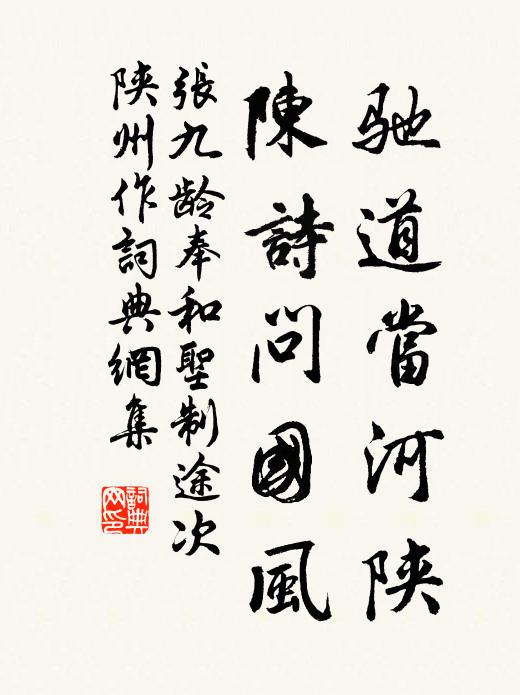 馳道當河陝
陳詩問國風
張九龄奉和聖制途次
陝州作詞典網集
詞典
网印